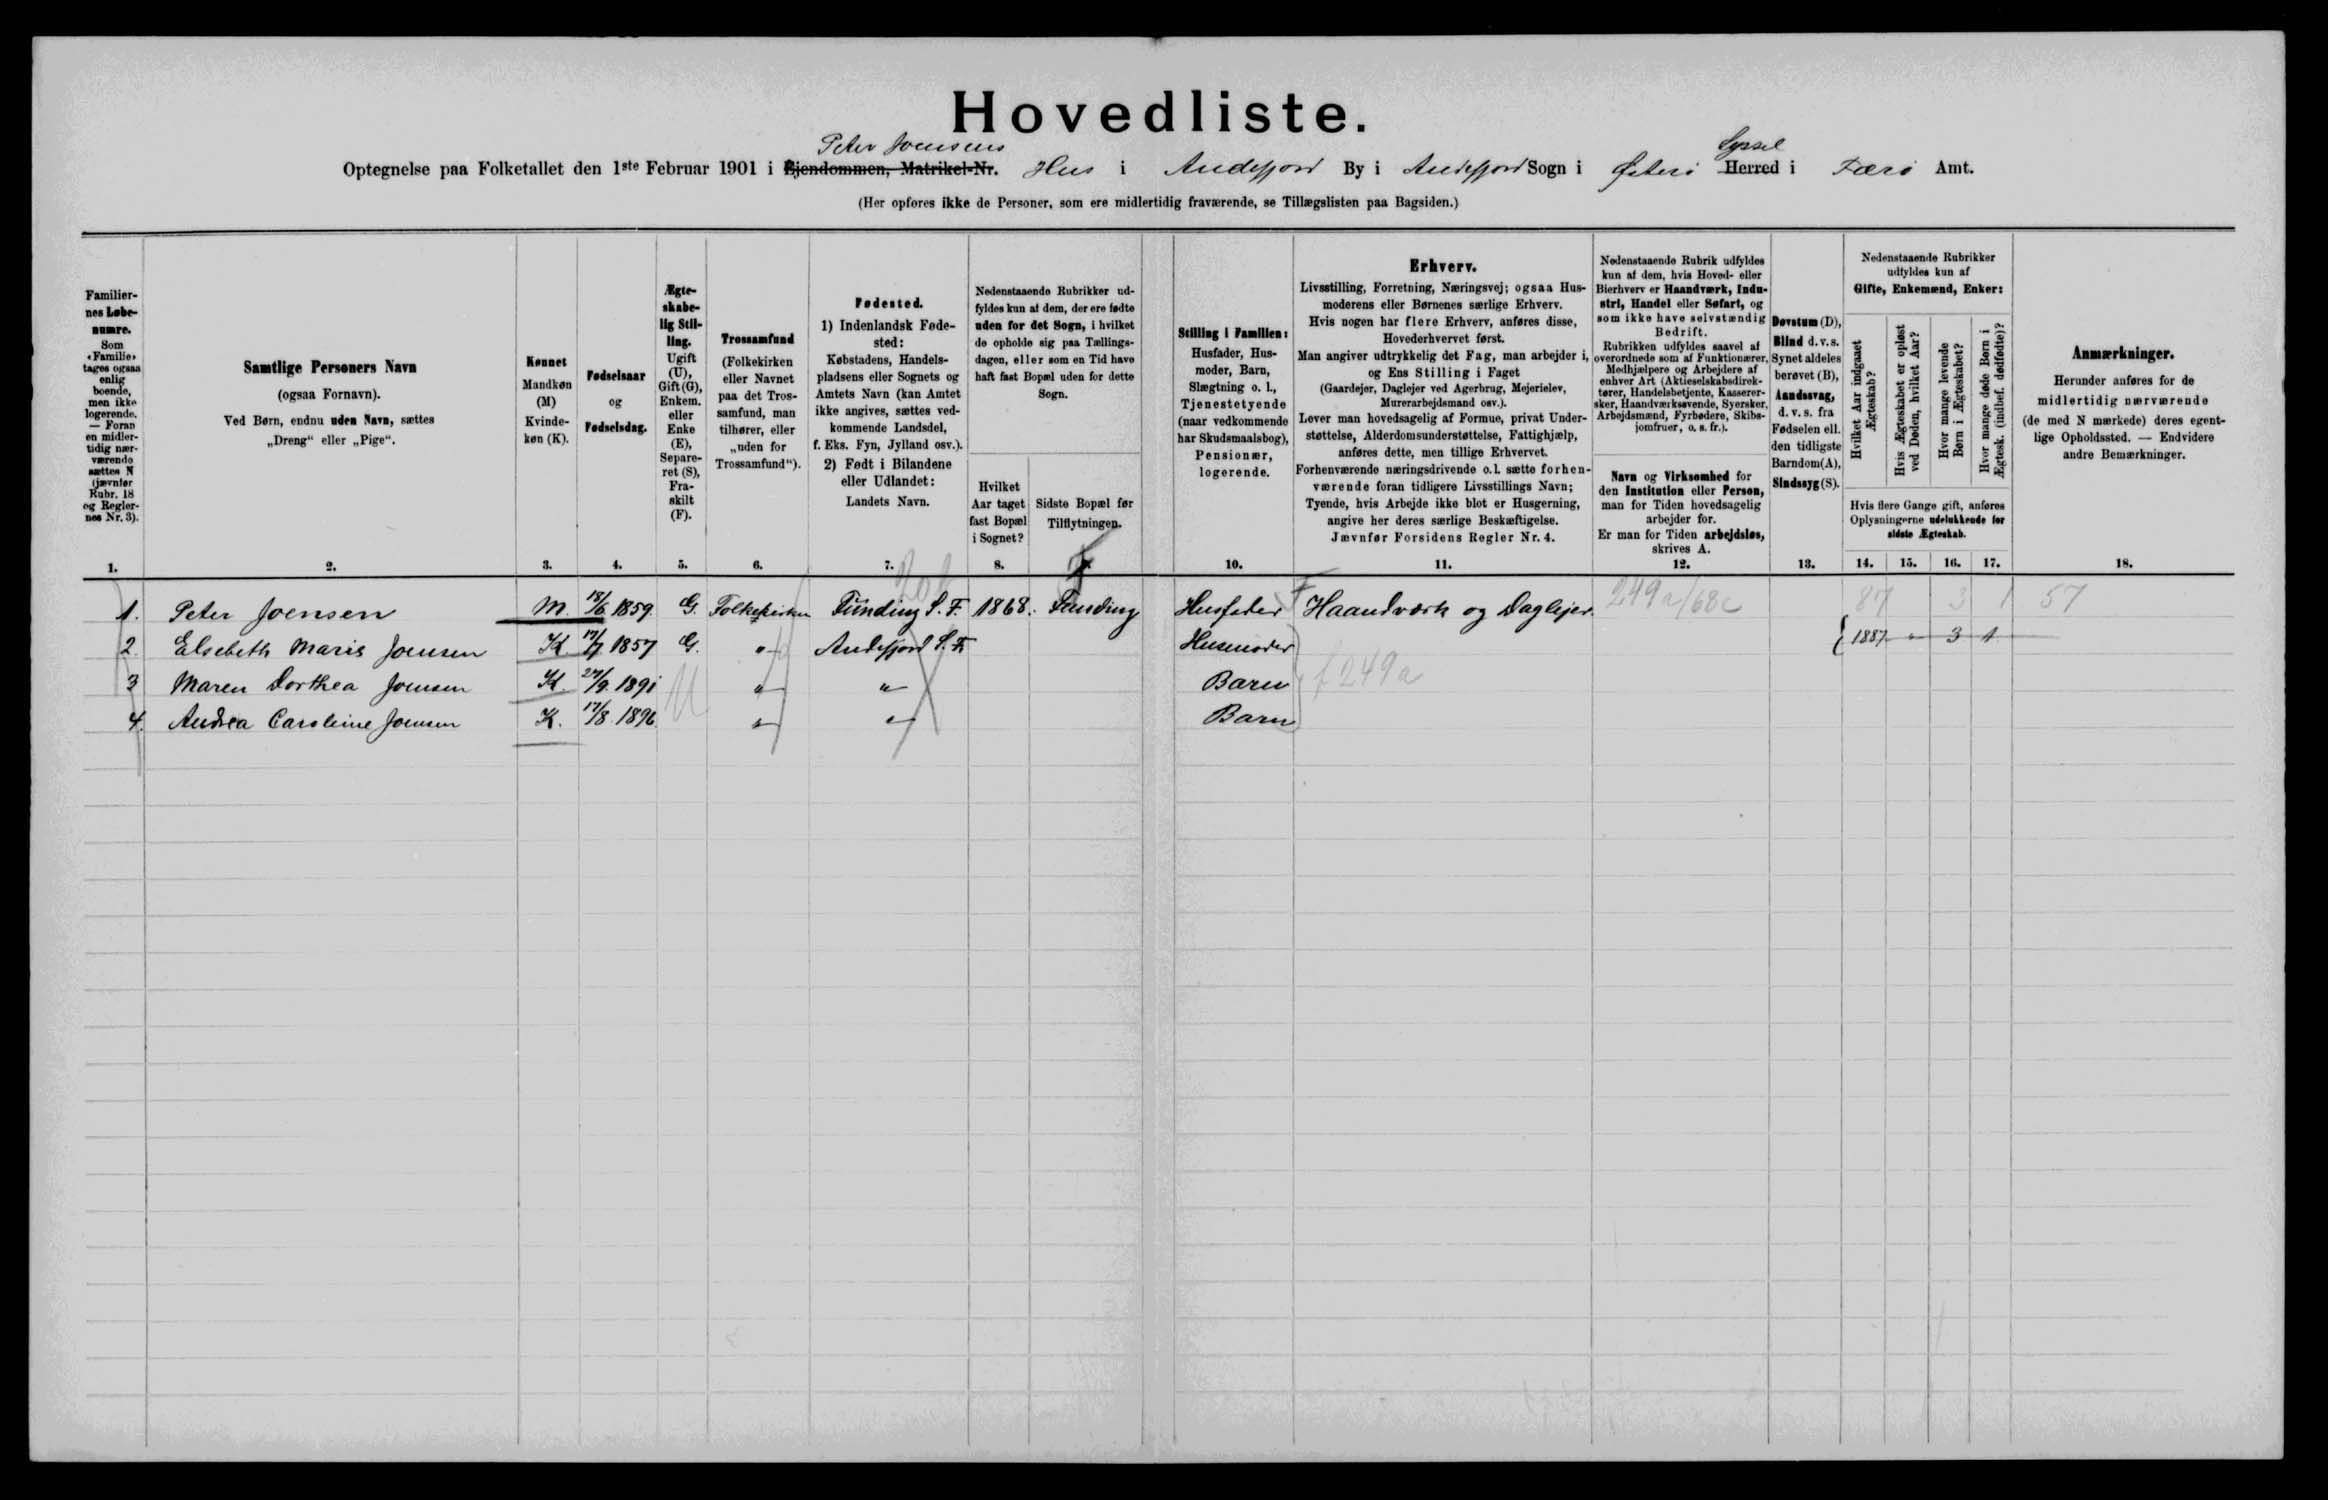 Hovedliste.
Peter Joensens
Syssel
Optegnelse paa Folketallet den 1ste Februar 1901 i Ejendommen, Matrikel-Nr. Hus i Andefjord By i Andefjord Sogn i Østerø Herred i Færø Amt.
(Her opføres ikke de Personer, som ere midlertidig fraværende, se Tillægslisten paa Bagsiden.)
Familier-
nes Løbe-
numre.
Som
«Familie»
tages ogsaa
enlig
boende,
men ikke
logerende.
— Foran
en midler-
tidig nær-
værende
sættes N
(jævnfør
Rubr. 18
og Regler-
nes Nr. 3).
1.
Samtlige Personers Navn
(ogsaa Fornavn).
Ved Børn, endnu uden Navn, sættes
„Dreng“ eller „Pige“.
2.
Kønnet
Mandkøn
(M)
Kvinde-
køn (K).
3.
Fødselsaar
og
Fødselsdag.
4.
Ægte-
skabe-
lig Stil-
ling.
Ugift
(U),
Gift (G),
Enkem.
eller
Enke
(E),
Separe-
ret (S),
Fra-
skilt
(F).
5.
Trossamfund
(Folkekirken
eller Navnet
paa det Tros-
samfund, man
tilhører, eller
„uden for
Trossamfund“).
6.
Fødested.
1) Indenlandsk Føde-
sted:
Købstadens, Handels-
pladsens eller Sognets og
Amtets Navn (kan Amtet
ikke angives, sættes ved-
kommende Landsdel,
f. Eks. Fyn, Jylland osv.).
2) Født i Bilandene
eller Udlandet:
Landets Navn.
7.
Nedenstaaende Rubrikker ud-
fyldes kun af dem, der ere fødte
uden for det Sogn, i hvilket
de opholde sig paa Tællings-
dagen, eller som en Tid have
haft fast Bopæl uden for dette
Sogn.
Hvilket
Aar taget
fast Bopæl
i Sognet?
8.
Sidste Bopæl før
Tilflytningen.
Stilling i Familien:
Husfader, Hus-
moder, Barn,
Slægtning o. l.,
Tjenestetyende
(naar vedkommende
har Skudsmaalsbog),
Pensionær,
logerende.
10.
Erhverv.
Livsstilling, Forretning, Næringsvej; ogsaa Hus-
moderens eller Børnenes særlige Erhverv.
Hvis nogen har flere Erhverv, anføres disse,
Hovederhvervet først.
Man angiver udtrykkelig det Fag, man arbejder i,
og Ens Stilling i Faget
(Gaardejer, Daglejer ved Agerbrug, Mejerielev,
Murerarbejdsmand osv.).
Lever man hovedsagelig af Formue, privat Under-
støttelse, Alderdomsunderstøttelse, Fattighjælp,
anføres dette, men tillige Erhvervet.
Forhenværende næringsdrivende o. l. sætte forhen-
værende foran tidligere Livsstillings Navn;
Tyende, hvis Arbejde ikke blot er Husgerning,
angive her deres særlige Beskæftigelse.
Jævnfør Forsidens Regler Nr. 4.
11.
Nedenstaaende Rubrik udfyldes
kun af dem, hvis Hoved- eller
Bierhverv er Haandværk, Indu-
stri, Handel eller Søfart, og
som ikke have selvstændig
Bedrift.
Rubrikken udfyldes saavel af
overordnede som af Funktionærer,
Medhjælpere og Arbejdere af
enhver Art (Aktieselskabsdirek-
tører, Handelsbetjente, Kasserer-
sker, Haandværkssvende, Syersker,
Arbejdsmænd, Fyrbødere, Skibs-
jomfruer, o. s. fr.).
Navn og Virksomhed for
den Institution eller Person,
man for Tiden hovedsagelig
arbejder for.
Er man for Tiden arbejdsløs,
skrives A.
12.
Døvstum (D),
Blind d. v. s.
Synet aldeles
berøvet (B),
Aandssvag,
d. v. s. fra
Fødselen ell.
den tidligste
Barndom (A),
Sindssyg (S).
13.
Nedenstaaende Rubrikker
udfyldes kun af
Gifte, Enkemænd, Enker:
Hvilket Aar indgaaet
Ægteskab?
Hvis Ægteskabet er opløst
ved Døden, hvilket Aar?
Hvor mange levende
Børn i Ægteskabet?
Hvor mange døde Børn i
Ægtesk. (indbef. dødfødte)?
Hvis flere Gange gift, anføres
Oplysningerne udelukkende for
sidste Ægteskab.
14. 15. 16. 17.
Anmærkninger.
Herunder anføres for de
midlertidig nærværende
(de med N mærkede) deres egent-
lige Opholdssted. — Endvidere
andre Bemærkninger.
18.
1. Peter Joensen M. 18/6 1859. G. Folkekirken Funding S. F. 1868. Funding Husfader Haandværk og Daglejer. 249a/68c 87 3 1 57
2. Elsebeth Maria Joensen K. 17/7 1857 G. " Andefjord S. F. Husmoder 1887 " 3 1
3 Maren Dorthea Joensen K. 27/9. 1891 " " Barn f 249a
4. Andrea Caroline Joensen K. 17/8. 1896 " " Barn